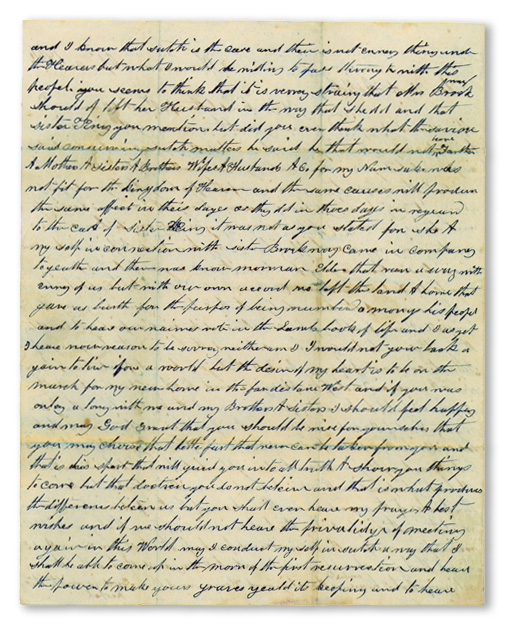 and I know that sutch is the case and their is not enney thing under
the Heavens but what I would be willing to pass through with this
peopel you seems to think that it is verrey strainge that Mrs Brook
way
should of left her Husband in the way that she did and that
sister King you mention but did you even think what the saviour
said concirning sutch matters he said he that would not leave Farther
A Mother A Sisters A Brothers Wife A Husband A C for my Nam sake was
not fit for the Kingdom of Heaven and the same causes will produce
the same effect in these dayes as they did in those days in regard
to the case of Sister King it was not as you stated for she A
my self in connection with sister Brookway came in company
to geather and ther was know morman Elder that ran a way with
enney of us but with our own accord we left the land A home that
gave us birth for the purpos of being numberd a mongs his peopel
and to have our naimes wrote in the Lambs book of life and I as yet
I have now reason to be sorrey neither am I I would not go back a
gain to live for a world but the desire of my heart is to be on the
march for my new home in the far distant West and if you was
onley a long with me and my Brothers A Sisters I should feel happey
and may God grant that you should be wise for yourselves that
you may choose that better part that never can be taken from you and
that is his spirit that will guied you into all truth A show you things
to come but that doctrin you do not beleive and that is what produces
the difference between us but you shall ever have my prayers A best
wishes and if we should not have the privalidge of meeting
again in this World may I conduct my self in sutch a way that I
shall be able to come up in the morn of the first resurrection and have
the power to make yours graves yeald its keeping and to have